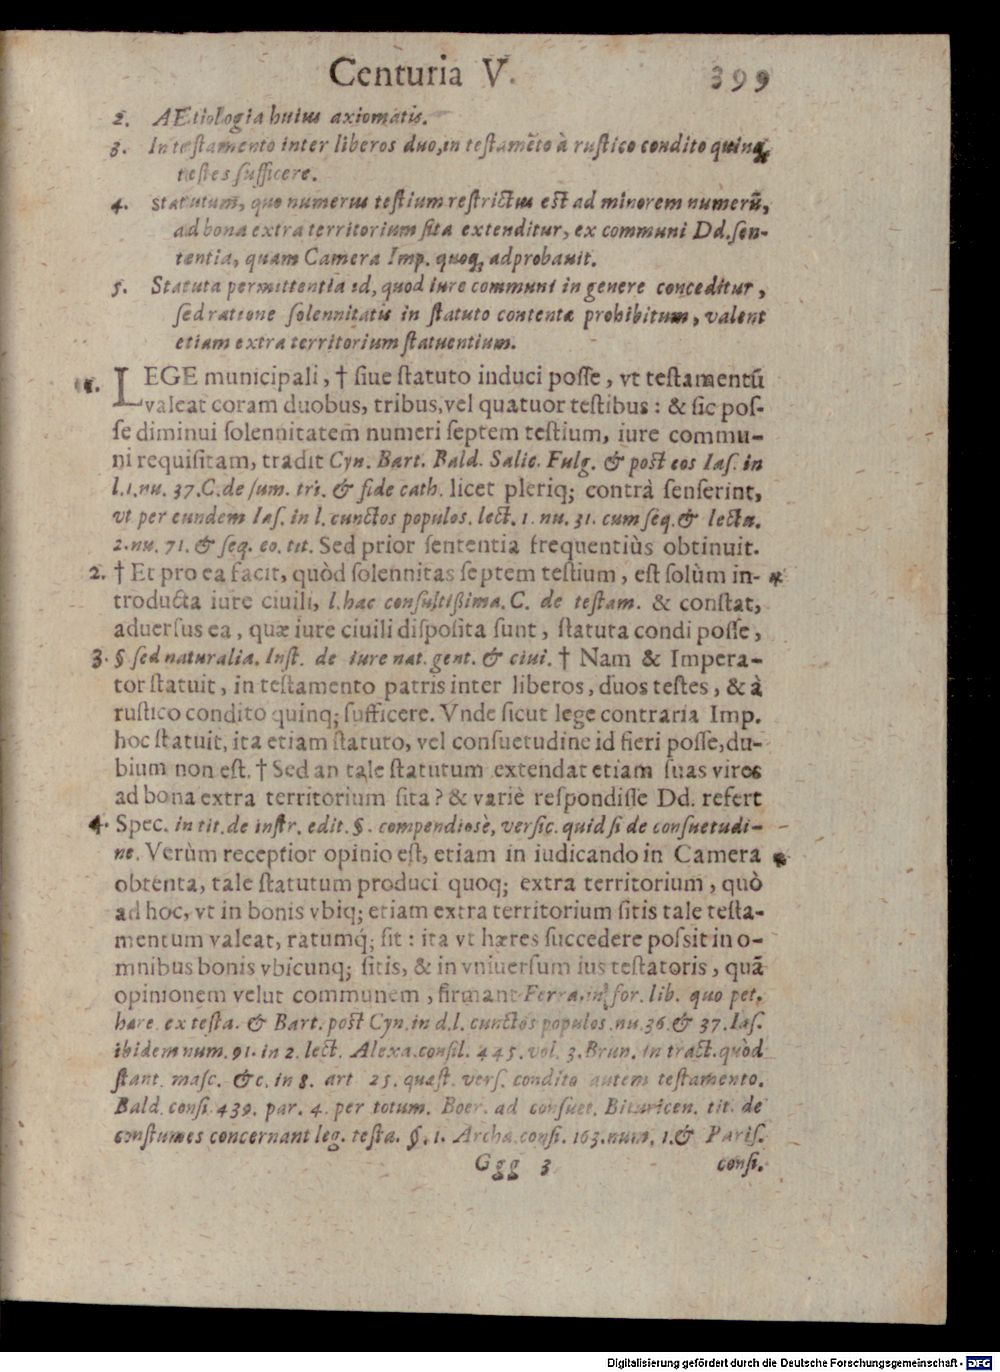 Centuria V. 399
2. AEtiologia huius axiomatis.
3. In testamento inter liberos duo, in testamēto à rustico condito quinq;
testes sufficere.
4. Statutum, quo numerus testium restrictus est ad minorem numerū,
ad bona extra territorium sita extenditur, ex communi Dd. sen-
tentia, quam Camera Imp. quoq; adprobauit.
5. Statuta permittentia id, quod iure communi in genere conceditur,
sed ratione solennitatis in statuto contentæ prohibitum, valent
etiam extra territorium statuentium.
1. LEGE municipali, † siue statuto induci posse, vt testamentū
valeat coram duobus, tribus, vel quatuor testibus: & sic pos-
se diminui solennitatem numeri septem testium, iure commu-
ni requisitam, tradit Cyn. Bart. Bald. Salic. Fulg. & post eos Ias. in
l. 1. nu. 37. C. de sum. tri. & fide cath. licet pleriq; contrà senserint,
vt per eundem Ias. in l. cunctos populos. lect. 1. nu. 31. cum seq. & lectæ.
2. nu. 71. & seq. eo. tit. Sed prior sententia frequentiùs obtinuit.
2. † Et pro ea facit, quòd solennitas septem testium, est solùm in- *
troducta iure ciuili, l. hac consultißima. C. de testam. & constat,
aduersus ea, quæ iure ciuili disposita sunt, statuta condi posse,
3. § sed naturalia. Inst. de iure nat. gent. & ciui. † Nam & Impera-
tor statuit, in testamento patris inter liberos, duos testes, & à
rustico condito quinq; sufficere. Vnde sicut lege contraria Imp.
hoc statuit, ita etiam statuto, vel consuetudine id fieri posse, du-
bium non est. † Sed an tale statutum extendat etiam suas vires
ad bona extra territorium sita? & variè respondisse Dd. refert
4. Spec. in tit. de instr. edit. §. compendiosè, versic. quid si de consuetudi-
ne. Verùm receptior opinio est, etiam in iudicando in Camera *
obtenta, tale statutum produci quoq; extra territorium, quò
ad hoc, vt in bonis vbiq; etiam extra territorium sitis tale testa-
mentum valeat, ratumq́; sit: ita vt hæres succedere possit in o-
mnibus bonis vbicunq; sitis, & in vniuersum ius testatoris, quā
opinionem velut communem, firmant Ferra. in for. lib. quo pet.
hære. ex testa. & Bart. post Cyn. in d. l. cunctos populos. nu. 36. & 37. Ias.
ibidem num. 91. in 2. lect. Alexa. consil. 445. vol. 3. Brun. in tract. quòd
stant. masc. &c. in 8. art 25. quæst. vers. condito autem testamento.
Bald. consi. 439. par. 4. per totum. Boer. ad consuet. Bituricen. tit. de
constumes concernant leg. testa. §. 1. Archa. consi. 163. num. 1. & Paris.
Ggg 3 consi.
Digitalisierung gefördert durch die Deutsche Forschungsgemeinschaft - DFG